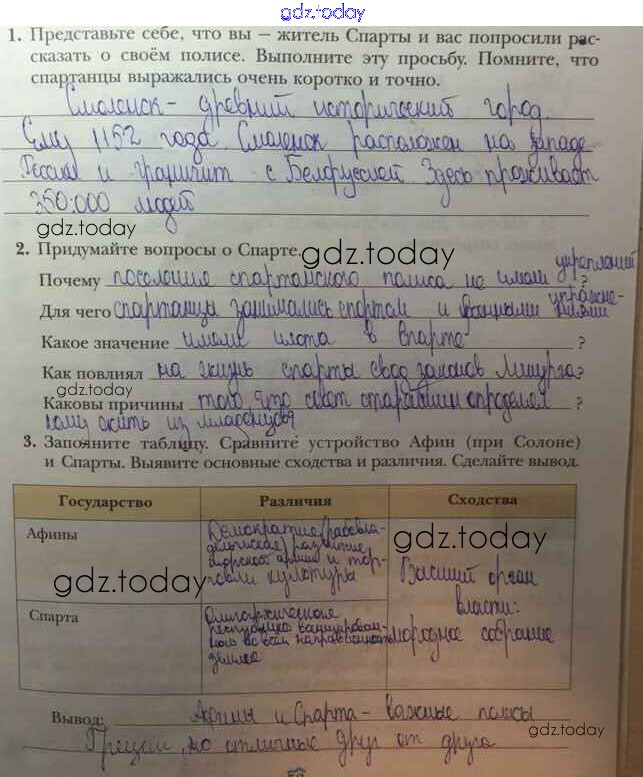 gdz.today
1. Представьте себе, что вы – житель Спарты и вас попросили рас-
сказать о своём полисе. Выполните эту просьбу. Помните, что
спартанцы выражались очень коротко и точно.
Смоленск - древний исторический город.
Ему 1152 года. Смоленск расположен на западе
России и граничит с Белоруссией. Здесь проживает
350.000 людей
gdz.today
2. Придумайте вопросы о Спарте.
gdz.today
укреплений
Почему поселения спартанского полиса не имели ?
Для чего спартанцы занимались спортом и военными упражне-
ниями
Какое значение имели илоты в Спарте ?
Как повлиял на жизнь спарты свод законов Ликурга?
gdz.today
Каковы причины того, что совет старейшин определял ?
кому жить из младенцев
3. Заполните таблицу. Сравните устройство Афин (при Солоне)
и Спарты. Выявите основные сходства и различия. Сделайте вывод.
Государство Различия Сходства
Афины
Демократия (рабовла-
дельческая) развитие
морской армии и тор-
говли культуры
gdz.today
gdz.today
Высший орган
власти:
народное собрание
Спарта
Олигархическая
республика
во всей
Вывод: Афины и Спарта - важные полисы
gdz.today
Греции, но отличные друг от друга